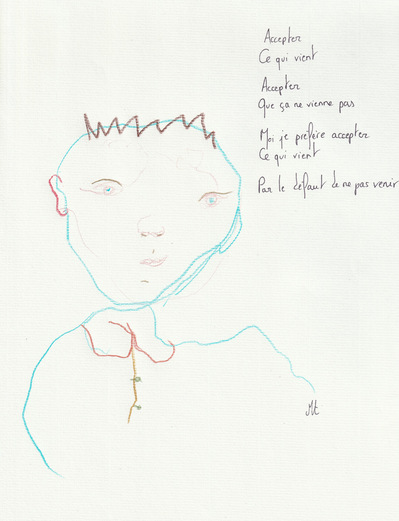 Accepter
Ce qui vient
Accepter
Que ça ne vienne pas
Moi je préfère accepter
Ce qui vient
Par le défaut de ne pas venir
Mt